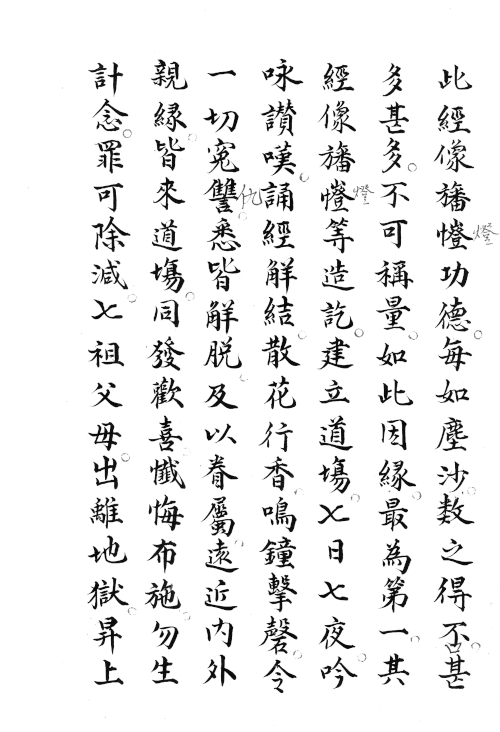 此經像旛憕燈功德每如塵沙数之得不口甚
多甚多不可稱量如此因緣最為第一其
經像旛憕燈等造訖建立道塲七日七夜吟
咏讃嘆誦經解結散花行香鳴鐘擊磬令
一切寃讐仇悉皆解脱及以眷屬遠近内外
親緣皆來道塲同發歡喜懺悔布施勿生
計念罪可除減七祖父母出離地獄昇上